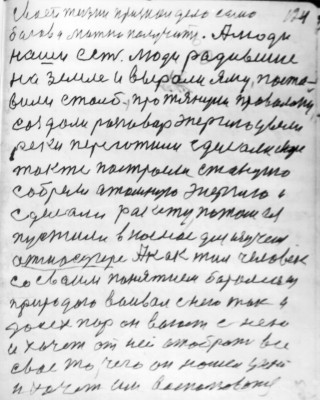 своей жизни природой дело само
было и можно получить. А люди 124
наши ест. люди родившие
на земле и вырыли яму, поста
вили столб, протянули проволоку,
создали разговор энергию увели
реки перегатили сделали море
также построили станцию
собрали атомную энергию и
сделали ракету, потом ея
пустили в космос для изучен
атмосфере А как там человек
со своим понятием боролся с
природою воевал с нею так и
досех пор он воюет с нею
и хочет от ней отобрать все
свое то, чего он нашел
и хочет им воспользов